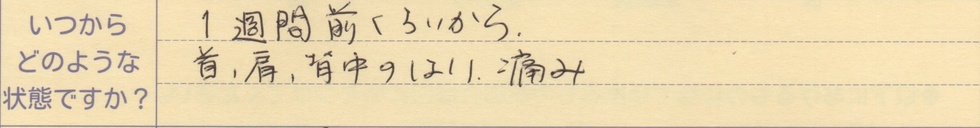 いつから
どのような
状態ですか？
1週間前くらいから.
首,肩,背中のはり.痛み